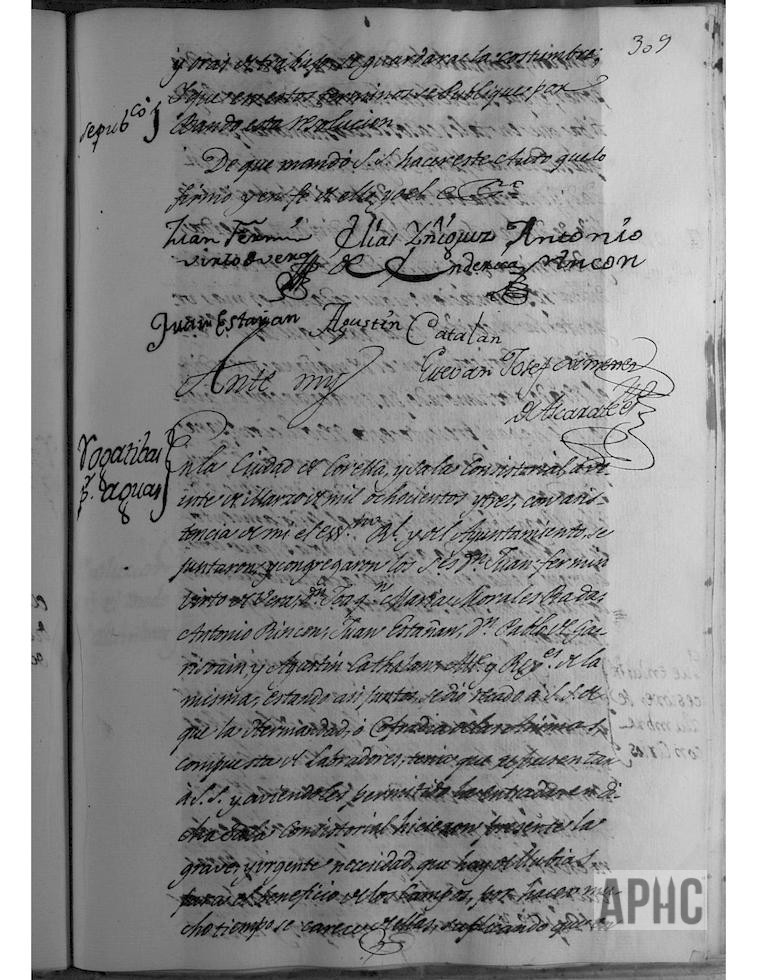 309
y otras de trabajo se guardara la costumbre,
y que en estos terminos se publique por
Bando esta resolucion
sepub.co
De que mandó S.S. hacer este Auto que lo
firmó y en fé de ello yo el
Juan Fermin Elias Antonio
virto de vera de Rincon
Juan Estañan Agustin Catalan
Ante my Estevan Josef Ximenez
de Alcarate
Rogatibas
pr. aguas
En la Ciudad de Corella, y sala Consistorial a
veinte de Marzo de mil ochocientos y tres, con asis-
tencia de mi el Essno. Rl. y del Ayuntamiento, se
juntaron y congregaron los Ses. Dn. Juan fermin
virto de Vera, Dn. Joaqn. Maria Morales Rada,
Antonio Rincon, Juan Estañan, Dn. Pablo de Ga-
risoain, y Agustin Cathalan Alc. y Regs. de la
misma, estando asi juntos, se dió recado a S.S. de
que la Hermandad, ó Cofradia de las Animas
compuesta de Labradores, tenia que representar
á S.S. y aviendoles permitido la entrada en di-
cha Sala Consistorial hicieron presente la
grave, y urgente necesidad, que hay de llubias
para el beneficio de los Campos, por hacer mu-
cho tiempo se carece de ellas, suplicando que
APHC